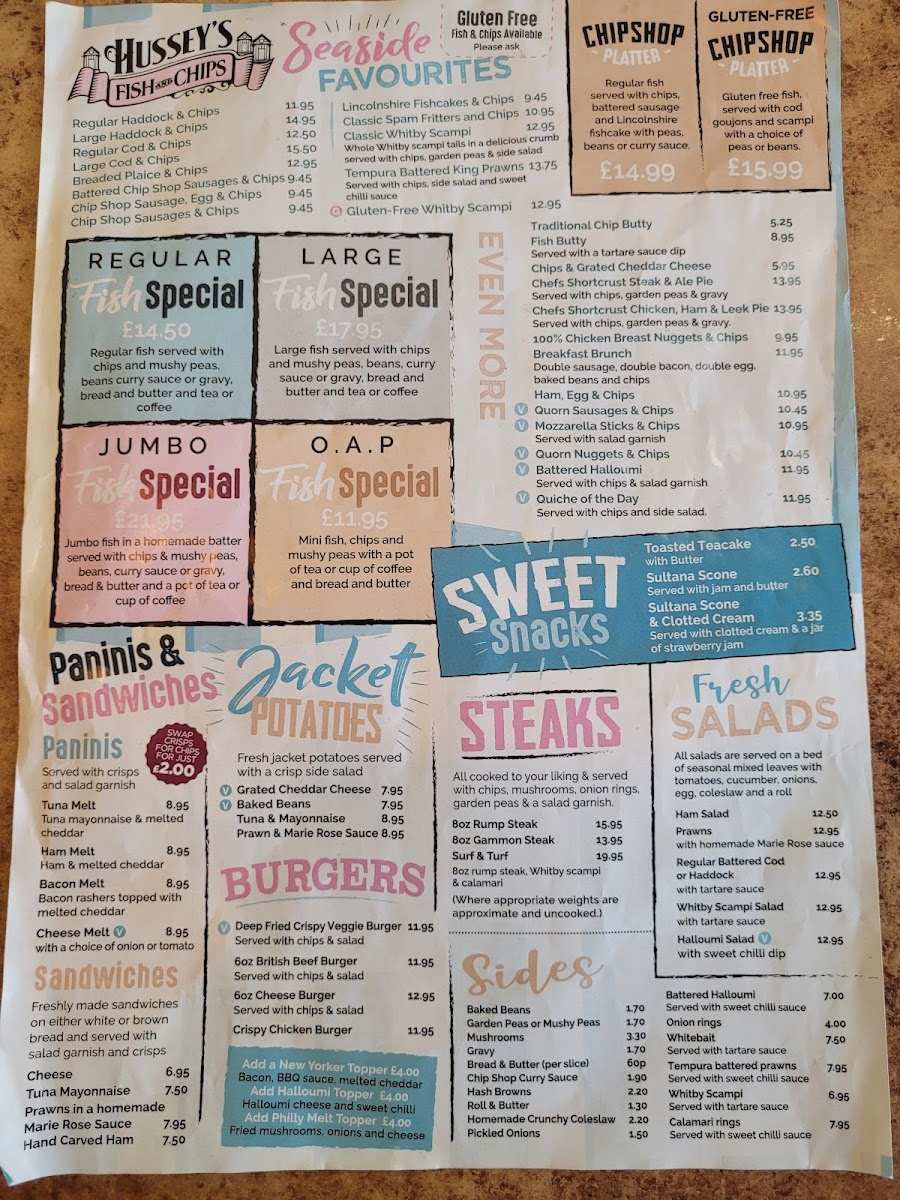 HUSSEY'S
FISH AND CHIPS
Seaside
FAVOURITES
Gluten Free
Fish & Chips Available
Please ask
Regular Haddock & Chips 11.95
Large Haddock & Chips 14.95
Regular Cod & Chips 12.50
Large Cod & Chips 15.50
Breaded Plaice & Chips 12.95
Battered Chip Shop Sausages & Chips 9.45
Chip Shop Sausage, Egg & Chips 9.45
Chip Shop Sausages & Chips 9.45
Lincolnshire Fishcakes & Chips 9.45
Classic Spam Fritters and Chips 10.95
Classic Whitby Scampi 12.95
Whole Whitby scampi tails in a delicious crumb
served with chips, garden peas & side salad
Tempura Battered King Prawns 13.75
Served with chips, side salad and sweet
chilli sauce
G Gluten-Free Whitby Scampi 12.95
CHIPSHOP
- PLATTER -
Regular fish
served with chips,
battered sausage
and Lincolnshire
fishcake with peas,
beans or curry sauce.
£14.99
GLUTEN-FREE
CHIPSHOP
- PLATTER -
Gluten free fish,
served with cod
goujons and scampi
with a choice of
peas or beans.
£15.99
REGULAR
Fish Special
£14.50
Regular fish served with
chips and mushy peas,
beans curry sauce or gravy,
bread and butter and tea or
coffee
LARGE
Fish Special
£17.95
Large fish served with chips
and mushy peas, beans, curry
sauce or gravy, bread and
butter and tea or coffee
JUMBO
Fish Special
£21.95
Jumbo fish in a homemade batter
served with chips & mushy peas,
beans, curry sauce or gravy,
bread & butter and a pot of tea or
cup of coffee
O.A.P
Fish Special
£11.95
Mini fish, chips and
mushy peas with a pot
of tea or cup of coffee
and bread and butter
EVEN MORE
Traditional Chip Butty 5.25
Fish Butty 8.95
Served with a tartare sauce dip
Chips & Grated Cheddar Cheese 5.95
Chefs Shortcrust Steak & Ale Pie 13.95
Served with chips, garden peas & gravy
Chefs Shortcrust Chicken, Ham & Leek Pie 13.95
Served with chips, garden peas & gravy.
100% Chicken Breast Nuggets & Chips 9.95
Breakfast Brunch 11.95
Double sausage, double bacon, double egg,
baked beans and chips
Ham, Egg & Chips 10.95
V Quorn Sausages & Chips 10.45
V Mozzarella Sticks & Chips 10.95
Served with salad garnish
V Quorn Nuggets & Chips 10.45
V Battered Halloumi 11.95
Served with chips & salad garnish
V Quiche of the Day 11.95
Served with chips and side salad.
SWEET
Snacks
Toasted Teacake 2.50
with Butter
Sultana Scone 2.60
Served with jam and butter
Sultana Scone
& Clotted Cream 3.35
Served with clotted cream & a jar
of strawberry jam
Paninis &
Sandwiches
Paninis
Served with crisps
and salad garnish
SWAP
CRISPS
FOR CHIPS
FOR JUST
£2.00
Tuna Melt 8.95
Tuna mayonnaise & melted
cheddar
Ham Melt 8.95
Ham & melted cheddar
Bacon Melt 8.95
Bacon rashers topped with
melted cheddar
Cheese Melt V 8.95
with a choice of onion or tomato
Sandwiches
Freshly made sandwiches
on either white or brown
bread and served with
salad garnish and crisps
Cheese 6.95
Tuna Mayonnaise 7.50
Prawns in a homemade
Marie Rose Sauce 7.95
Hand Carved Ham 7.50
Jacket
POTATOES
Fresh jacket potatoes served
with a crisp side salad
V Grated Cheddar Cheese 7.95
V Baked Beans 7.95
Tuna & Mayonnaise 8.95
Prawn & Marie Rose Sauce 8.95
BURGERS
V Deep Fried Crispy Veggie Burger 11.95
Served with chips & salad
6oz British Beef Burger 11.95
Served with chips & salad
6oz Cheese Burger 12.95
Served with chips & salad
Crispy Chicken Burger 11.95
Add a New Yorker Topper £4.00
Bacon, BBQ sauce, melted cheddar
Add Halloumi Topper £4.00
Halloumi cheese and sweet chilli
Add Philly Melt Topper £4.00
Fried mushrooms, onions and cheese
STEAKS
All cooked to your liking & served
with chips, mushrooms, onion rings,
garden peas & a salad garnish.
8oz Rump Steak 15.95
8oz Gammon Steak 13.95
Surf & Turf 19.95
8oz rump steak, Whitby scampi
& calamari
(Where appropriate weights are
approximate and uncooked.)
Fresh
SALADS
All salads are served on a bed
of seasonal mixed leaves with
tomatoes, cucumber, onions,
egg, coleslaw and a roll
Ham Salad 12.50
Prawns 12.95
with homemade Marie Rose sauce
Regular Battered Cod
or Haddock 12.95
with tartare sauce
Whitby Scampi Salad 12.95
with tartare sauce
Halloumi Salad V 12.95
with sweet chilli dip
Sides
Baked Beans 1.70
Garden Peas or Mushy Peas 1.70
Mushrooms 3.30
Gravy 1.70
Bread & Butter (per slice) 60p
Chip Shop Curry Sauce 1.90
Hash Browns 2.20
Roll & Butter 1.30
Homemade Crunchy Coleslaw 2.20
Pickled Onions 1.50
Battered Halloumi 7.00
Served with sweet chilli sauce
Onion rings 4.00
Whitebait 7.50
Served with tartare sauce
Tempura battered prawns 7.95
Served with sweet chilli sauce
Whitby Scampi 6.95
Served with tartare sauce
Calamari rings 7.95
Served with sweet chilli sauce